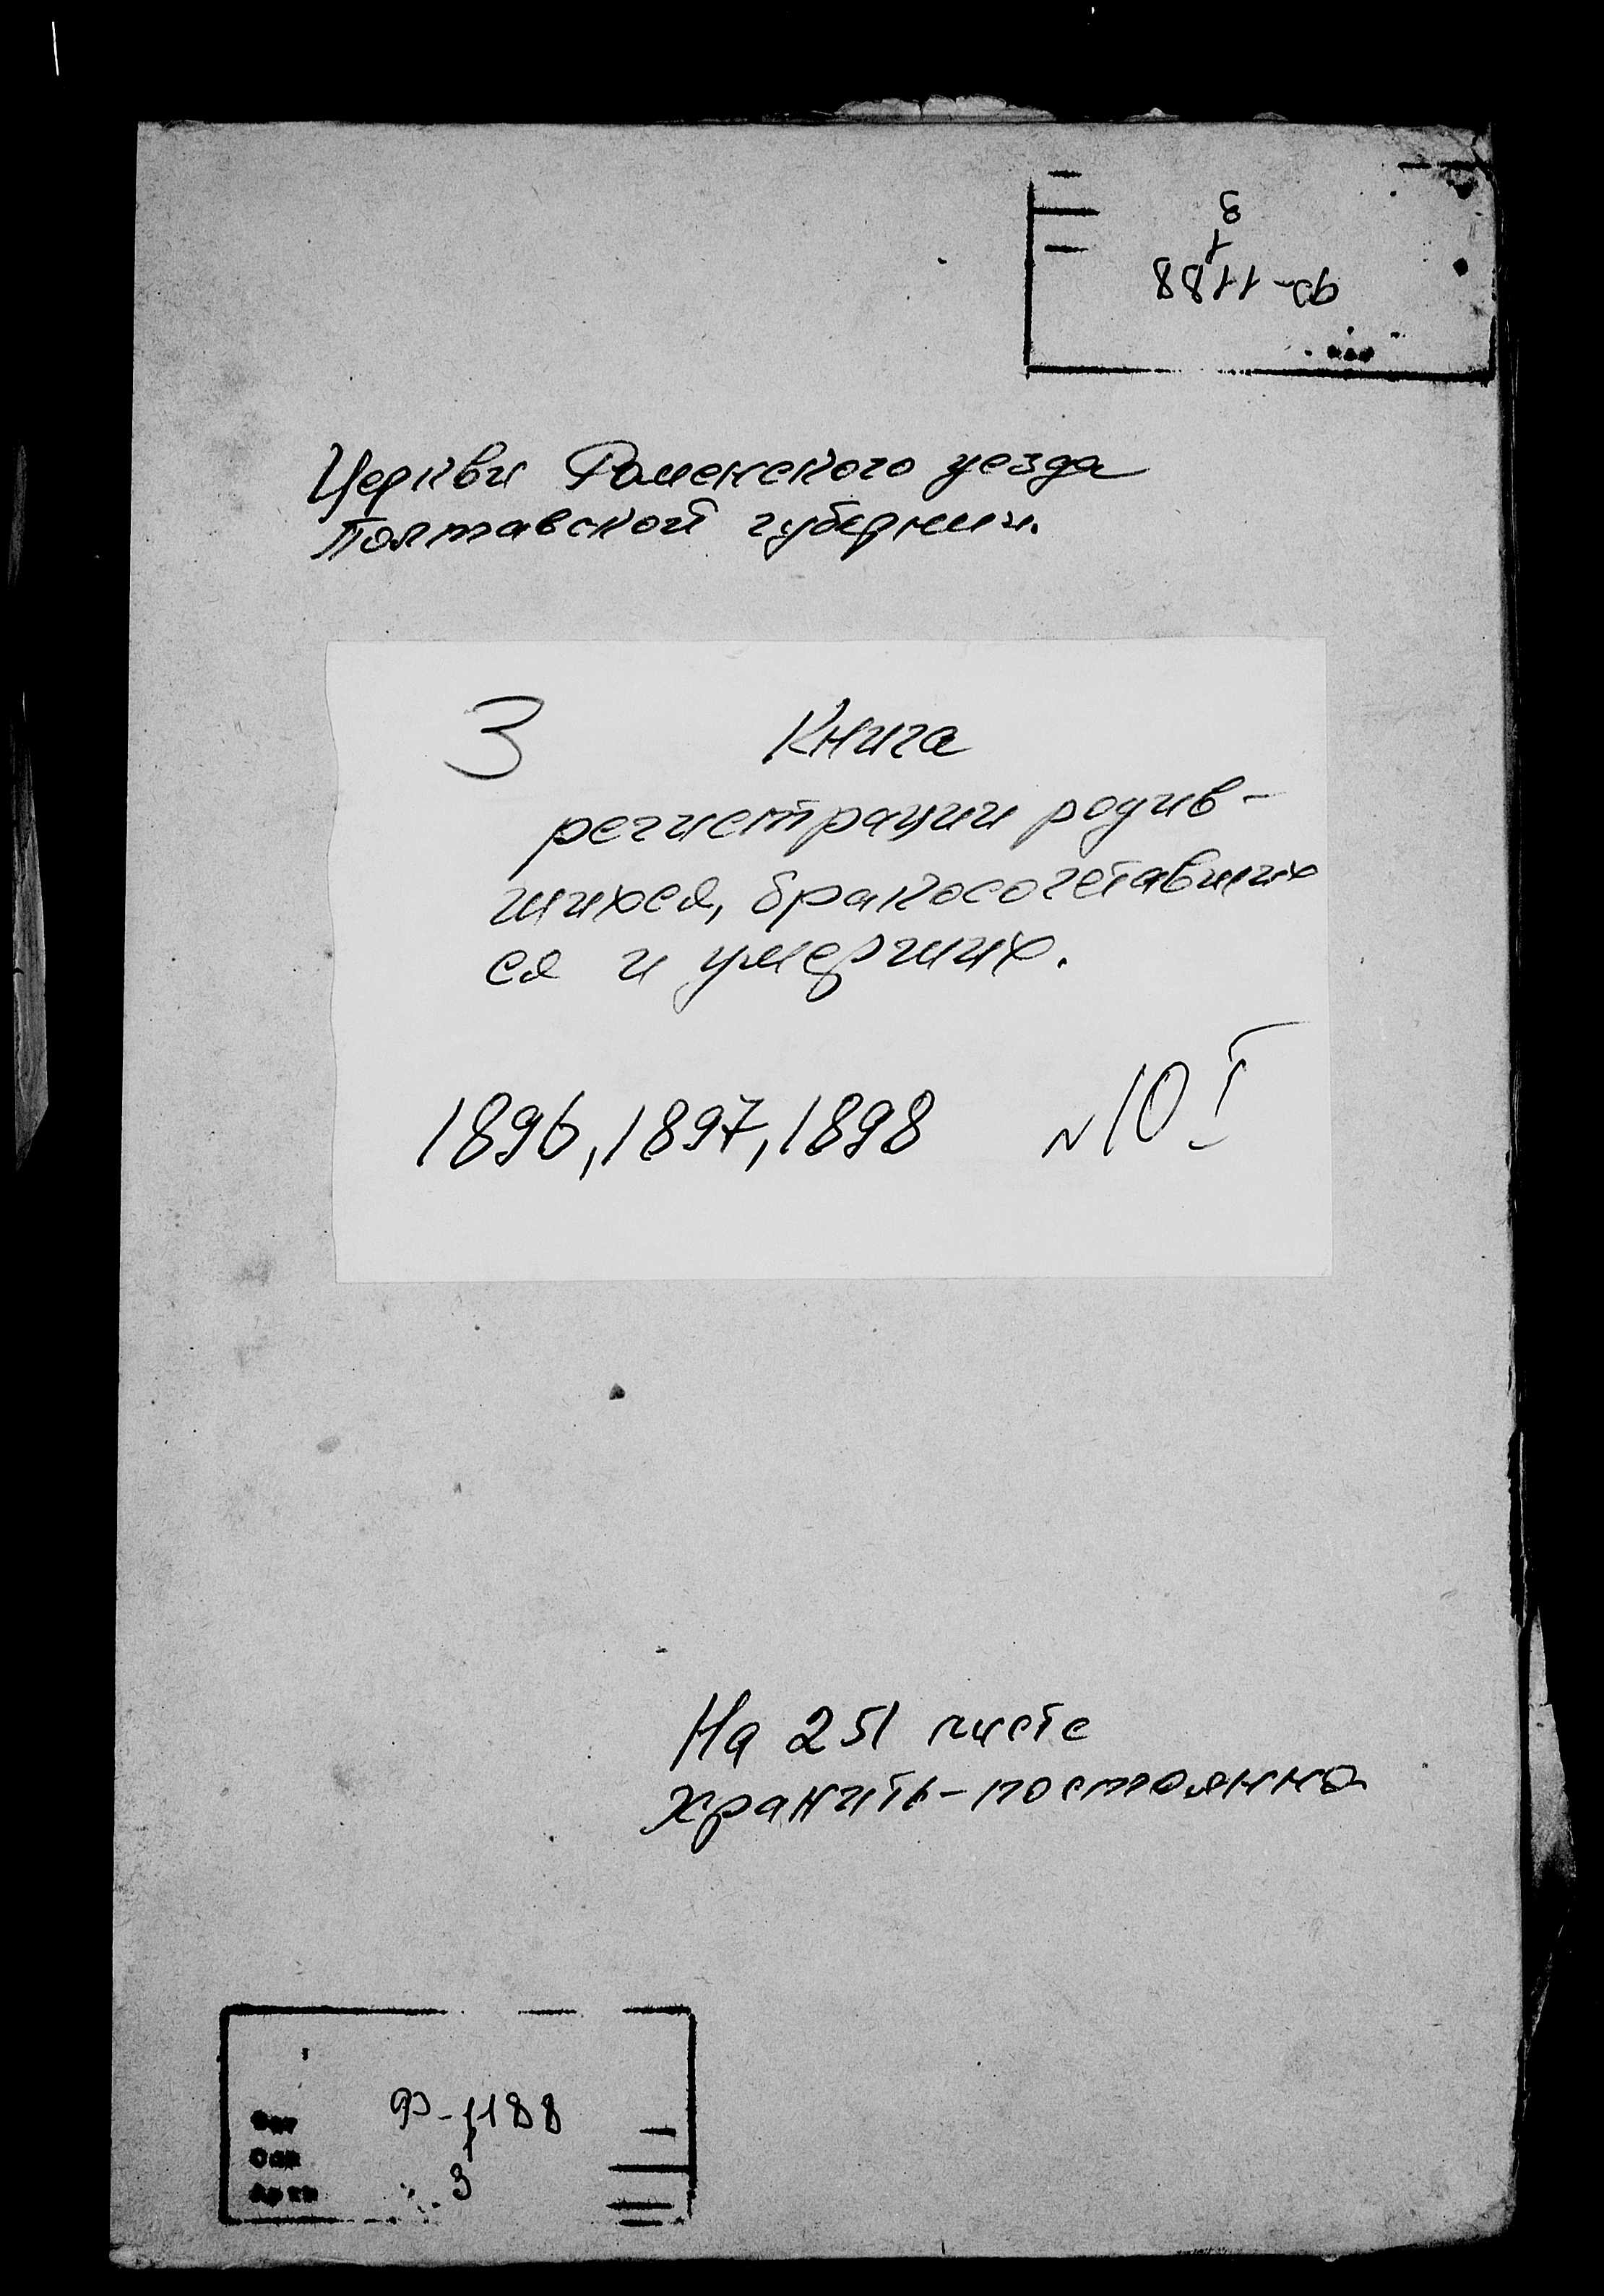 Ф-1188
1
3
Церкви Роменского уезда
Полтавской губернии.
3 Книга
регистрации родив-
шихся, бракосочетавших
ся и умерших.
1896, 1897, 1898 №10 I
На 251 листе
хранить-постоянно
Ф-1188
1
3